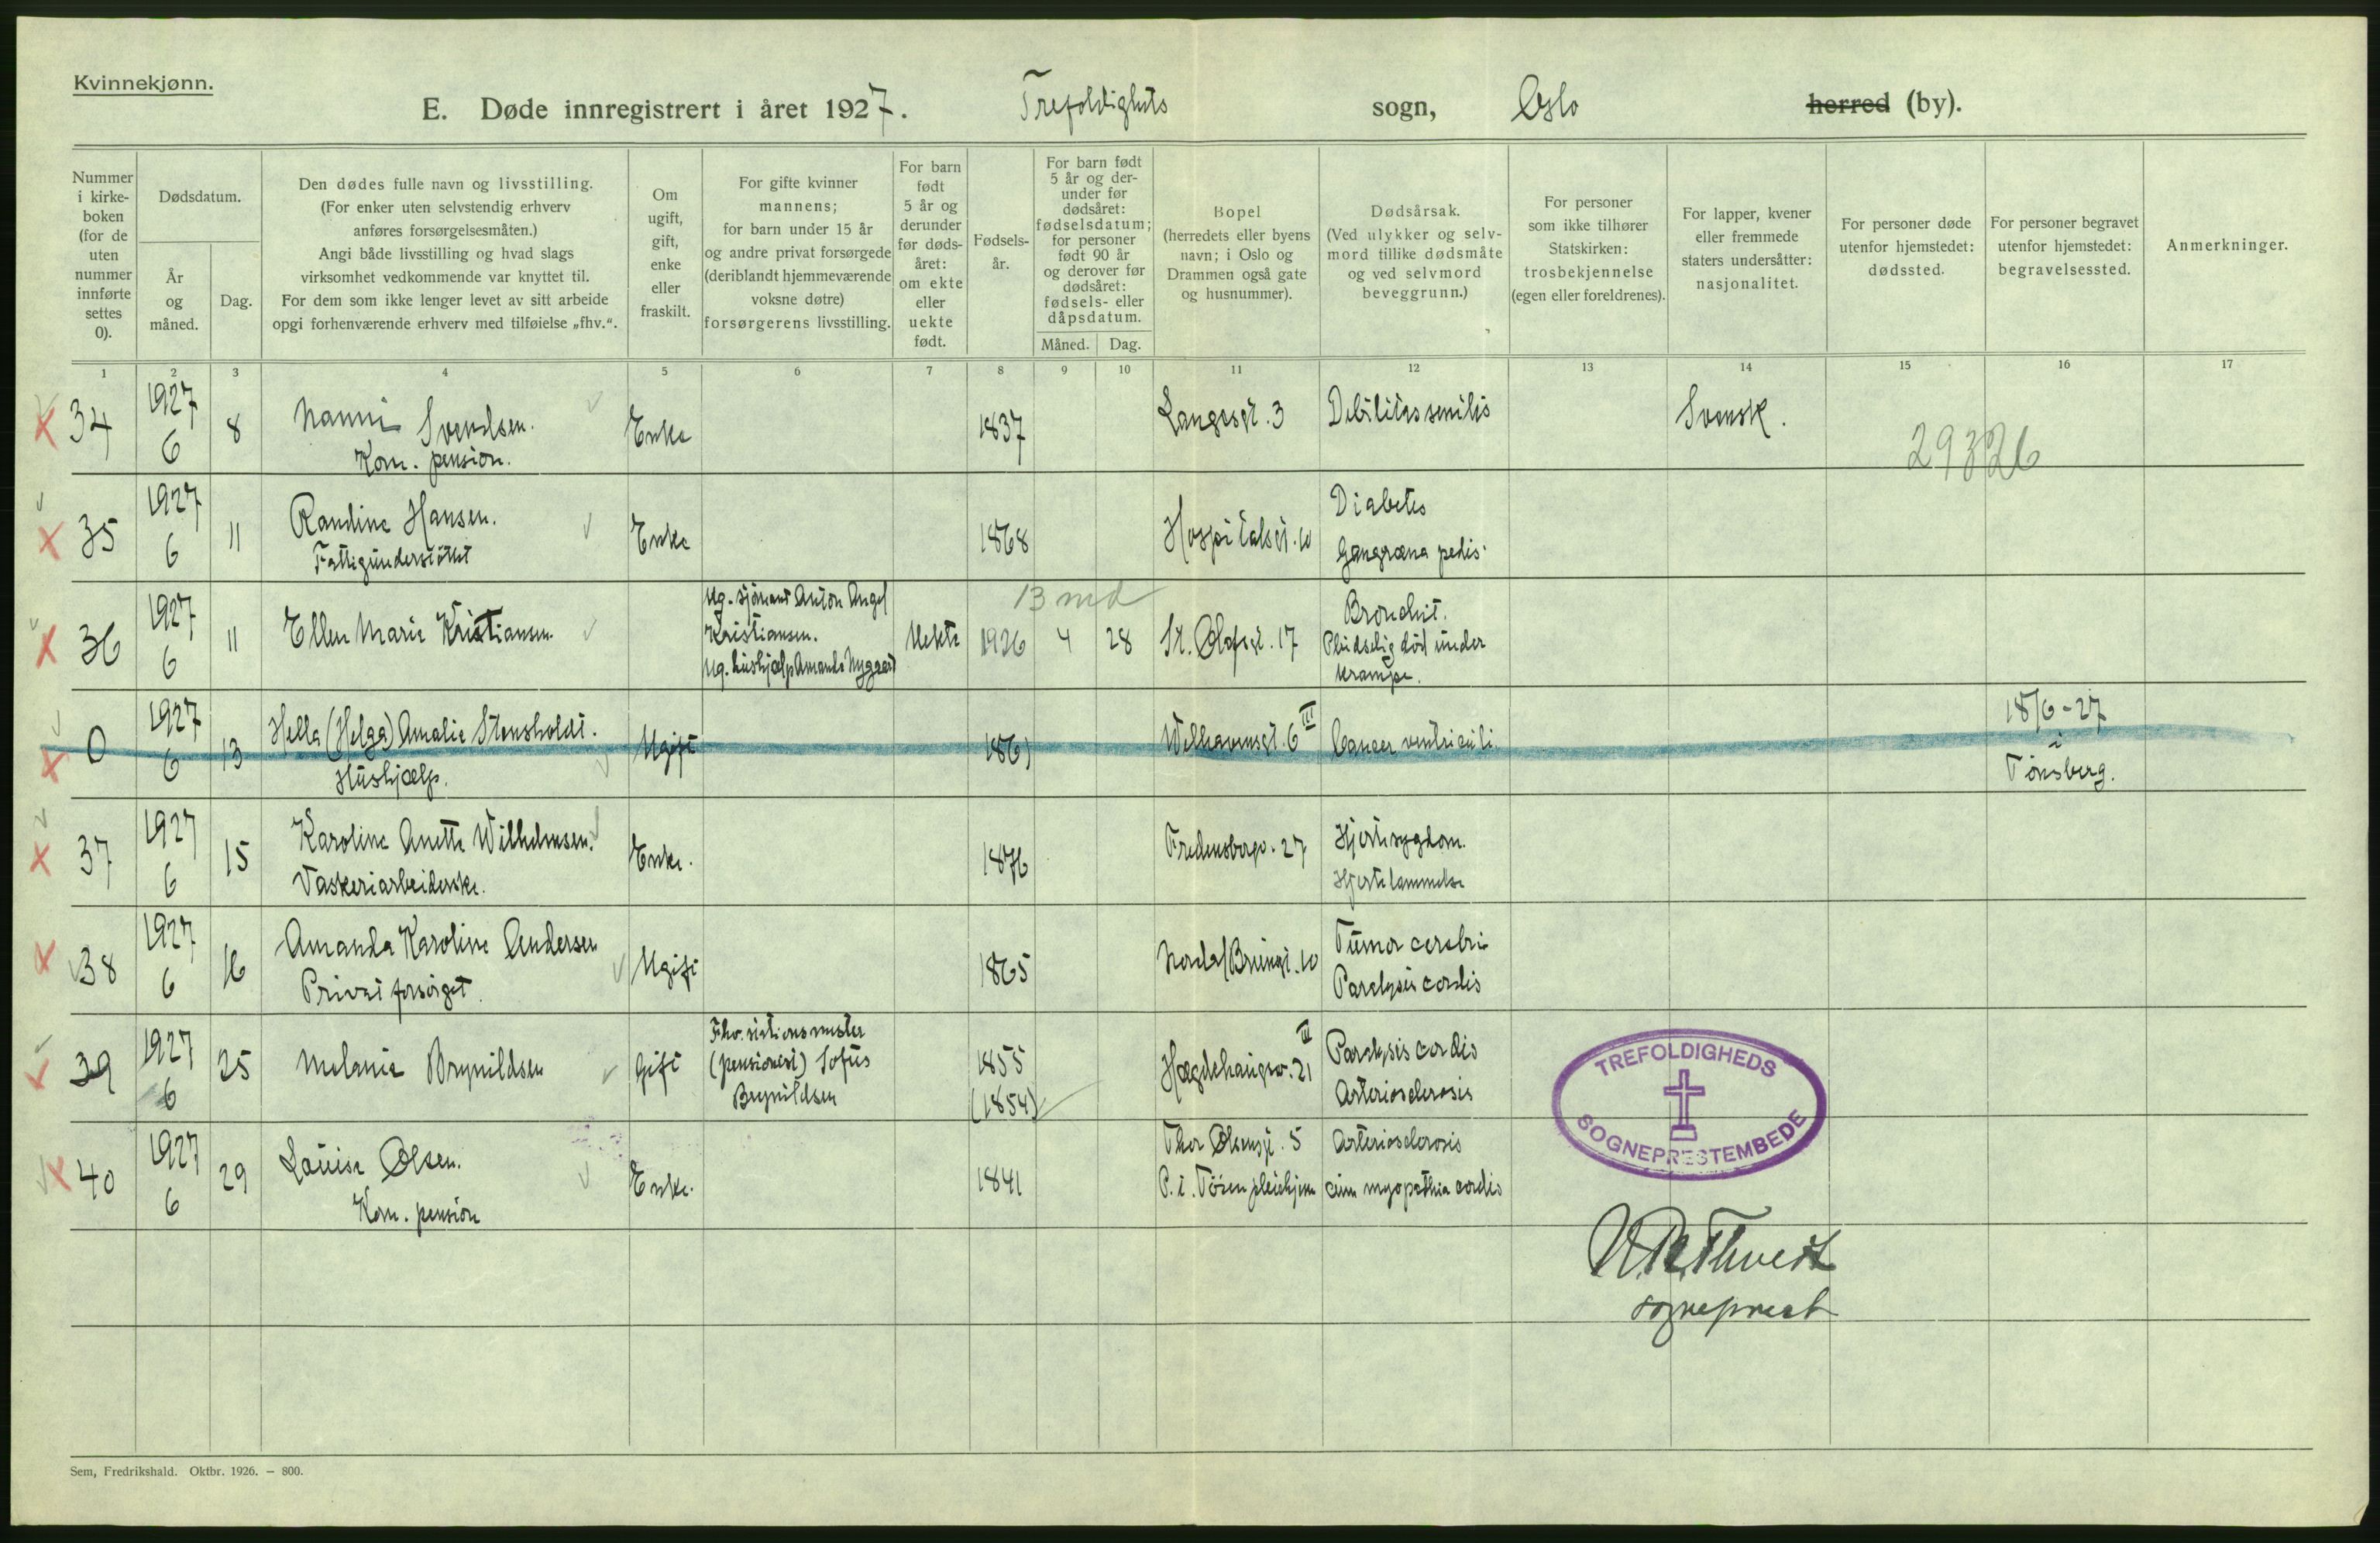 Kvinnekjønn.
E. Døde innregistrert i året 1927. Trefoldighets sogn, Oslo herred (by).
Nummer i kirke- boken (for de uten nummer innførte settes 0).
Dødsdatum.
År og måned.
Dag.
Den dødes fulle navn og livsstilling.
(For enker uten selvstendig erhverv
anføres forsørgelsesmåten.)
Angi både livsstilling og hvad slags
virksomhet vedkommende var knyttet til.
For dem som ikke lenger levet av sitt arbeide
opgi forhenværende erhverv med tilføielse „fhv.“.
Om ugift, gift, enke eller fraskilt.
For gifte kvinner
mannens;
for barn under 15 år
og andre privat forsørgede
(deriblandt hjemmeværende
voksne døtre)
forsørgerens livsstilling.
For barn født 5 år og derunder før døds- året: om ekte eller uekte født.
Fødsels- år.
For barn født
5 år og der-
under før
dødsåret:
fødselsdatum;
for personer
født 90 år
og derover før
dødsåret:
fødsels- eller
dåpsdatum.
Måned. Dag.
Bopel
(herredets eller byens
navn; i Oslo og
Drammen også gate
og husnummer).
Dødsårsak.
(Ved ulykker og selv-
mord tillike dødsmåte
og ved selvmord
beveggrunn.)
For personer
som ikke tilhører
Statskirken:
trosbekjennelse
(egen eller foreldrenes).
For lapper, kvener
eller fremmede
staters undersåtter:
nasjonalitet.
For personer døde
utenfor hjemstedet:
dødssted.
For personer begravet
utenfor hjemstedet:
begravelsessted.
Anmerkninger.
1 2 3 4 5 6 7 8 9 10 11 12 13 14 15 16 17
34 1927 6 8 Nanni Svendsen. Enke 1837 Langesgt. 3 Debilitas senilis Svensk.
Kom. pension.
29326
35 1927 6 11 Randine Hansen. Enke 1868 Hospitalsgt. 10 Diabetes
Fattigunderstøttet Gangræna pedis.
13 md
36 1927 6 11 Ellen Marie Kristiansen. Ug. sjømand Anton Angel
Kristiansen.
Ug. hushjælp Amanda Nygaard
Uekte 1926 4 28 St. Olafsgt. 17 Bronchit.
Pludselig død under
krampe.
0 1927 6 13 Hella (Helga) Amalie Stensholdt. Ugift 1861 Welhavensgt. 6 III Cancer ventriculi. 18/6-27
i
Tønsberg.
Hushjælp.
37 1927 6 15 Karoline Anette Wilhelmsen. Enke. 1876 Fredensborgv. 27 Hjertesygdom.
Vaskeriarbeiderske. Hjertelammelse
38 1927 6 16 Amanda Karoline Andersen Ugift 1865 Nordal Brunsgt. 10 Tumor cerebri
Privat forsørget. Paralysis cordis
39 1927 6 25 Melanie Brynildsen Gift Fhv. stationsmester
(pensionert) Sofus
Brynildsen
1855
(1854)
Hægdehaugsv. 21 III Paralysis cordis
Arteriosclerosis
40 1927 6 29 Louise Olsen. Enke. 1841 Thor Olsensgt. 5 Arteriosclerosis
Kom. pension P. t. Tåsen pleiehjem cum myopathia cordis
TREFOLDIGHEDS
SOGNEPRESTEMBEDE
sogneprest
Sem, Fredrikshald. Oktbr. 1926. — 800.